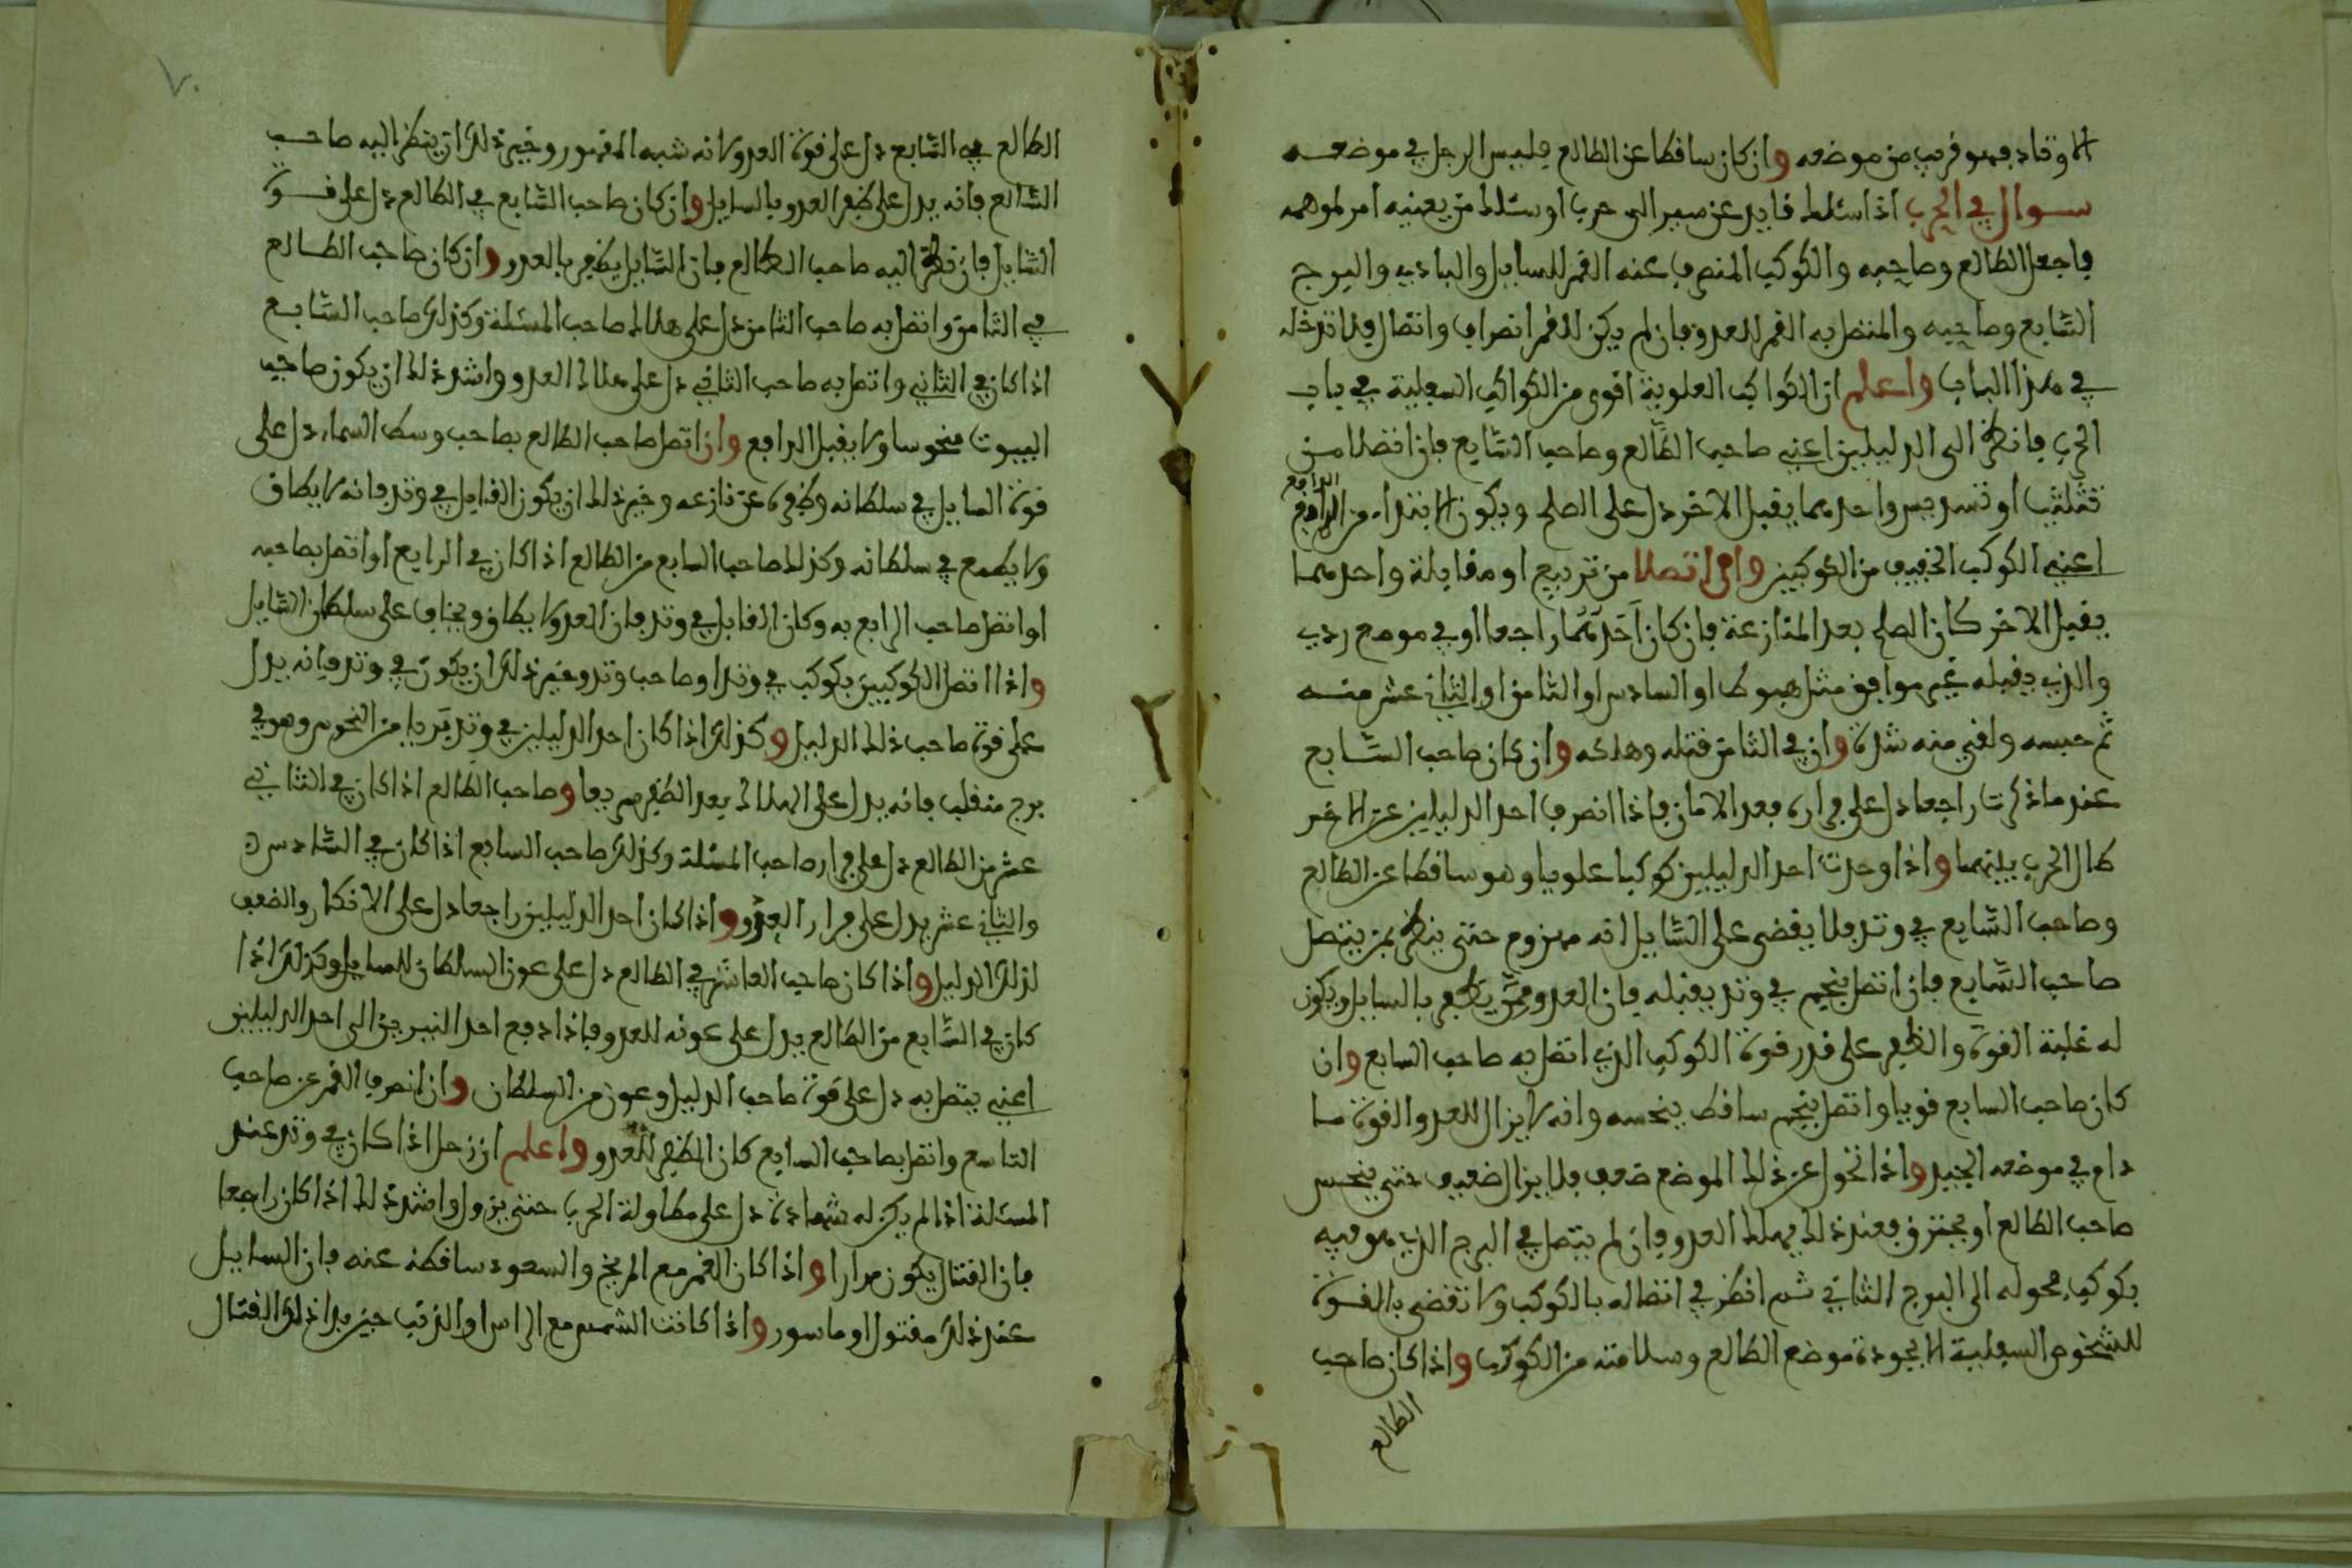 الاوتاد فهو قريب من موضعه وان كان ساقطا عن الطالع فليس الرجل في موضعه
سوال في الحرب اذا سئلت فايد عن سير الى حرب او سئلت من يعنيه امر لموهمه
فاجعل الطالع وصاحبه والكوكب المنصرف عنه القمر للسايل والبادي والبرج
السابع وصاحبه والمتصل به القمر للعدو فان لم يكن للقمر انصراف واتصال فلا تدخله
في هذا الباب واعلم ان الكواكب العلوية اقوى من الكواكب السفلية في باب
الحرب فانظر الى الدليلين اعني صاحب الطالع وصاحب السابع فان اتصلا من
تثليث او تسديس واحدهما يقبل الاخر دل على الصلح ويكون الابتداء من الدافع
الدافع
اعني الكوكب الخفيف من الكوكبين وان اتصلا من تربيع او مقابلة واحدهما
يقبل الاخر كان الصلح بعد المنازعة فان كان احدهما راجعا او في موضع ردي
والذي يقبله غير موافق مثل هبوط او السادس او الثامن او الثاني عشر منه
ثم حبسه ولقي منه شدة وان في الثامن قتله وهلكه وان كان صاحب السابع
عندما ذكرت راجعا دل على فراره بعد الامان فاذا انصرف احد الدليلين عن الاخر
طال الحرب بينهما واذا وجدت احد الدليلين كوكبا علويا وهو ساقطا عن الطالع
وصاحب السابع في وتد فلا يقضى على السايل انه مهزوم حتى ينظر بمن يتصل
صاحب السابع فان اتصل بنجم في وتد يقبله فان العدو ممن يظفر بالسايل ويكون
له غلبة القوة والظفر على قدر قوة الكوكب الذي اتصل به صاحب السابع وان
كان صاحب السابع قويا واتصل بنجم ساقط ينحسه وانه لا يزال للعدو القوة ما
دام في موضعه الجيد واذا تحول عن ذلك الموضع ضعف فلا يزال ضعيف حتى ينحس
صاحب الطالع او يحترق فعند ذلك يهلك العدو فان لم يتصل في البرج الذي هو فيه
بكوكب فحوله الى البرج الثاني ثم انظر في اتصاله بالكوكب ولا تقضى بالقوة
للنجوم السفلية الا بجودة موضع الطالع وسلامته من الكوكب واذا كان صاحب
الطالع
٧٠
الطالع في السابع دل على قوة العدو لانه شبه المقهور وخير ذلك ان ينظر اليه صاحب
السابع فانه يدل على ظفر العدو بالسايل وان كان صاحب السابع في الطالع دل على قوة
السايل فان نظر اليه صاحب الطالع فان السايل يظفر بالعدو وان كان صاحب الطالع
في الثامن واتصل به صاحب الثامن دل على هلاك صاحب المسئلة وكذلك صاحب السابع
اذا كان في الثاني واتصل به صاحب الثاني دل على هلاك العدو واشد ذلك ان يكون صاحب
البيوت منحوسا ولا يقبل الدافع وان اتصل صاحب الطالع بصاحب وسط السماء دل على
قوة السايل في سلطانه وظفره عن نازعه وخير ذلك ان يكون القابل في وتد فانه لا يطاق
ولا يطمع في سلطانه وكذلك صاحب السابع من الطالع اذا كان في الرابع او اتصل بصاحبه
او اتصل صاحب الرابع به وكان القابل في وتد فان العدو لا يطاق ويخاف على سلطان السايل
واذا اتصل الكوكبين بكوكب في وتد او صاحب وتد وخير ذلك ان يكون في وتد فانه يدل
على قوة صاحب ذلك الدليل وكذلك اذا كان احد الدليلين في وتد بريا من النحوس وهو في
برج منقلب فانه يدل على الهلاك بعد الظفر سريعا وصاحب الطالع اذا كان في الثاني
عشر من الطالع دل على فرار صاحب المسئلة وكذلك صاحب السابع اذا كان في السادس
والثاني عشر يدل على فرار العدو واذا كان احد الدليلين راجعا دل على الانكار والضعف
لذلك الدليل واذا كان صاحب العاشر في الطالع دل على عون السلطان للسايل وكذلك اذا
كان في السابع من الطالع يدل على عونه للعدو فاذا دفع احد النيرين الى احد الدليلين
اعني يتصل به دل على قوة صاحب الدليل وعون من السلطان وان انصرف القمر عن صاحب
التاسع واتصل بصاحب السابع كان الظفر للعدو واعلم ان زحل اذا كان في وتد عند
المسئلة اذا لم يكن له شهادة دل على مطاولة الحرب حتى يزول واشد ذلك اذا كان راجعا
فان القتال يكون مرارا واذا كان القمر مع المريخ والسعود ساقطة عنه فان السايل
عند ذلك مقتول او ماسور واذا كانت الشمس مع الراس او الذنب حين بدا ذلك القتال